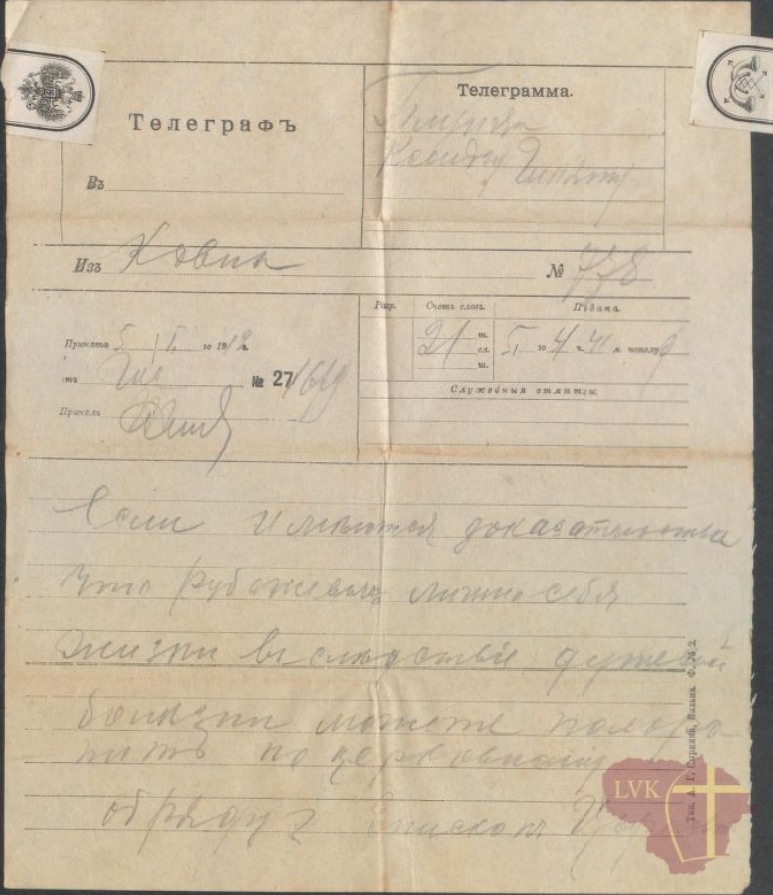 Телеграфъ
Въ
Телеграмма.
Изъ Ковна
№ 778
Принята 5 I го 1912 г.
№ 27/1619
Принялъ
Разр. Счетъ словъ. Подана.
21 сл. 5 го 4 ч. 41 м. пополу
Служебныя отмѣтки:
Если имеются доказательства
что лишил себя
жизни вследствие душевной
болезни можете похоро
нить по церковному
обряду Епископ
Тип. А. Г. Сыркина, Вильна. Ф. № 2.
LVK